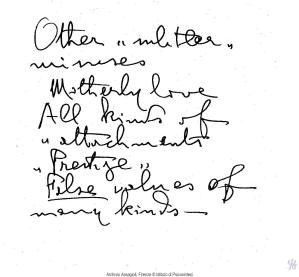 Other „ 
minuses
Motherly love
All kinds of
"attachments"
„Prestige„
False values of
many kinds—
Archivio Assagioli, Firenze © Istituto di Psicosintesi